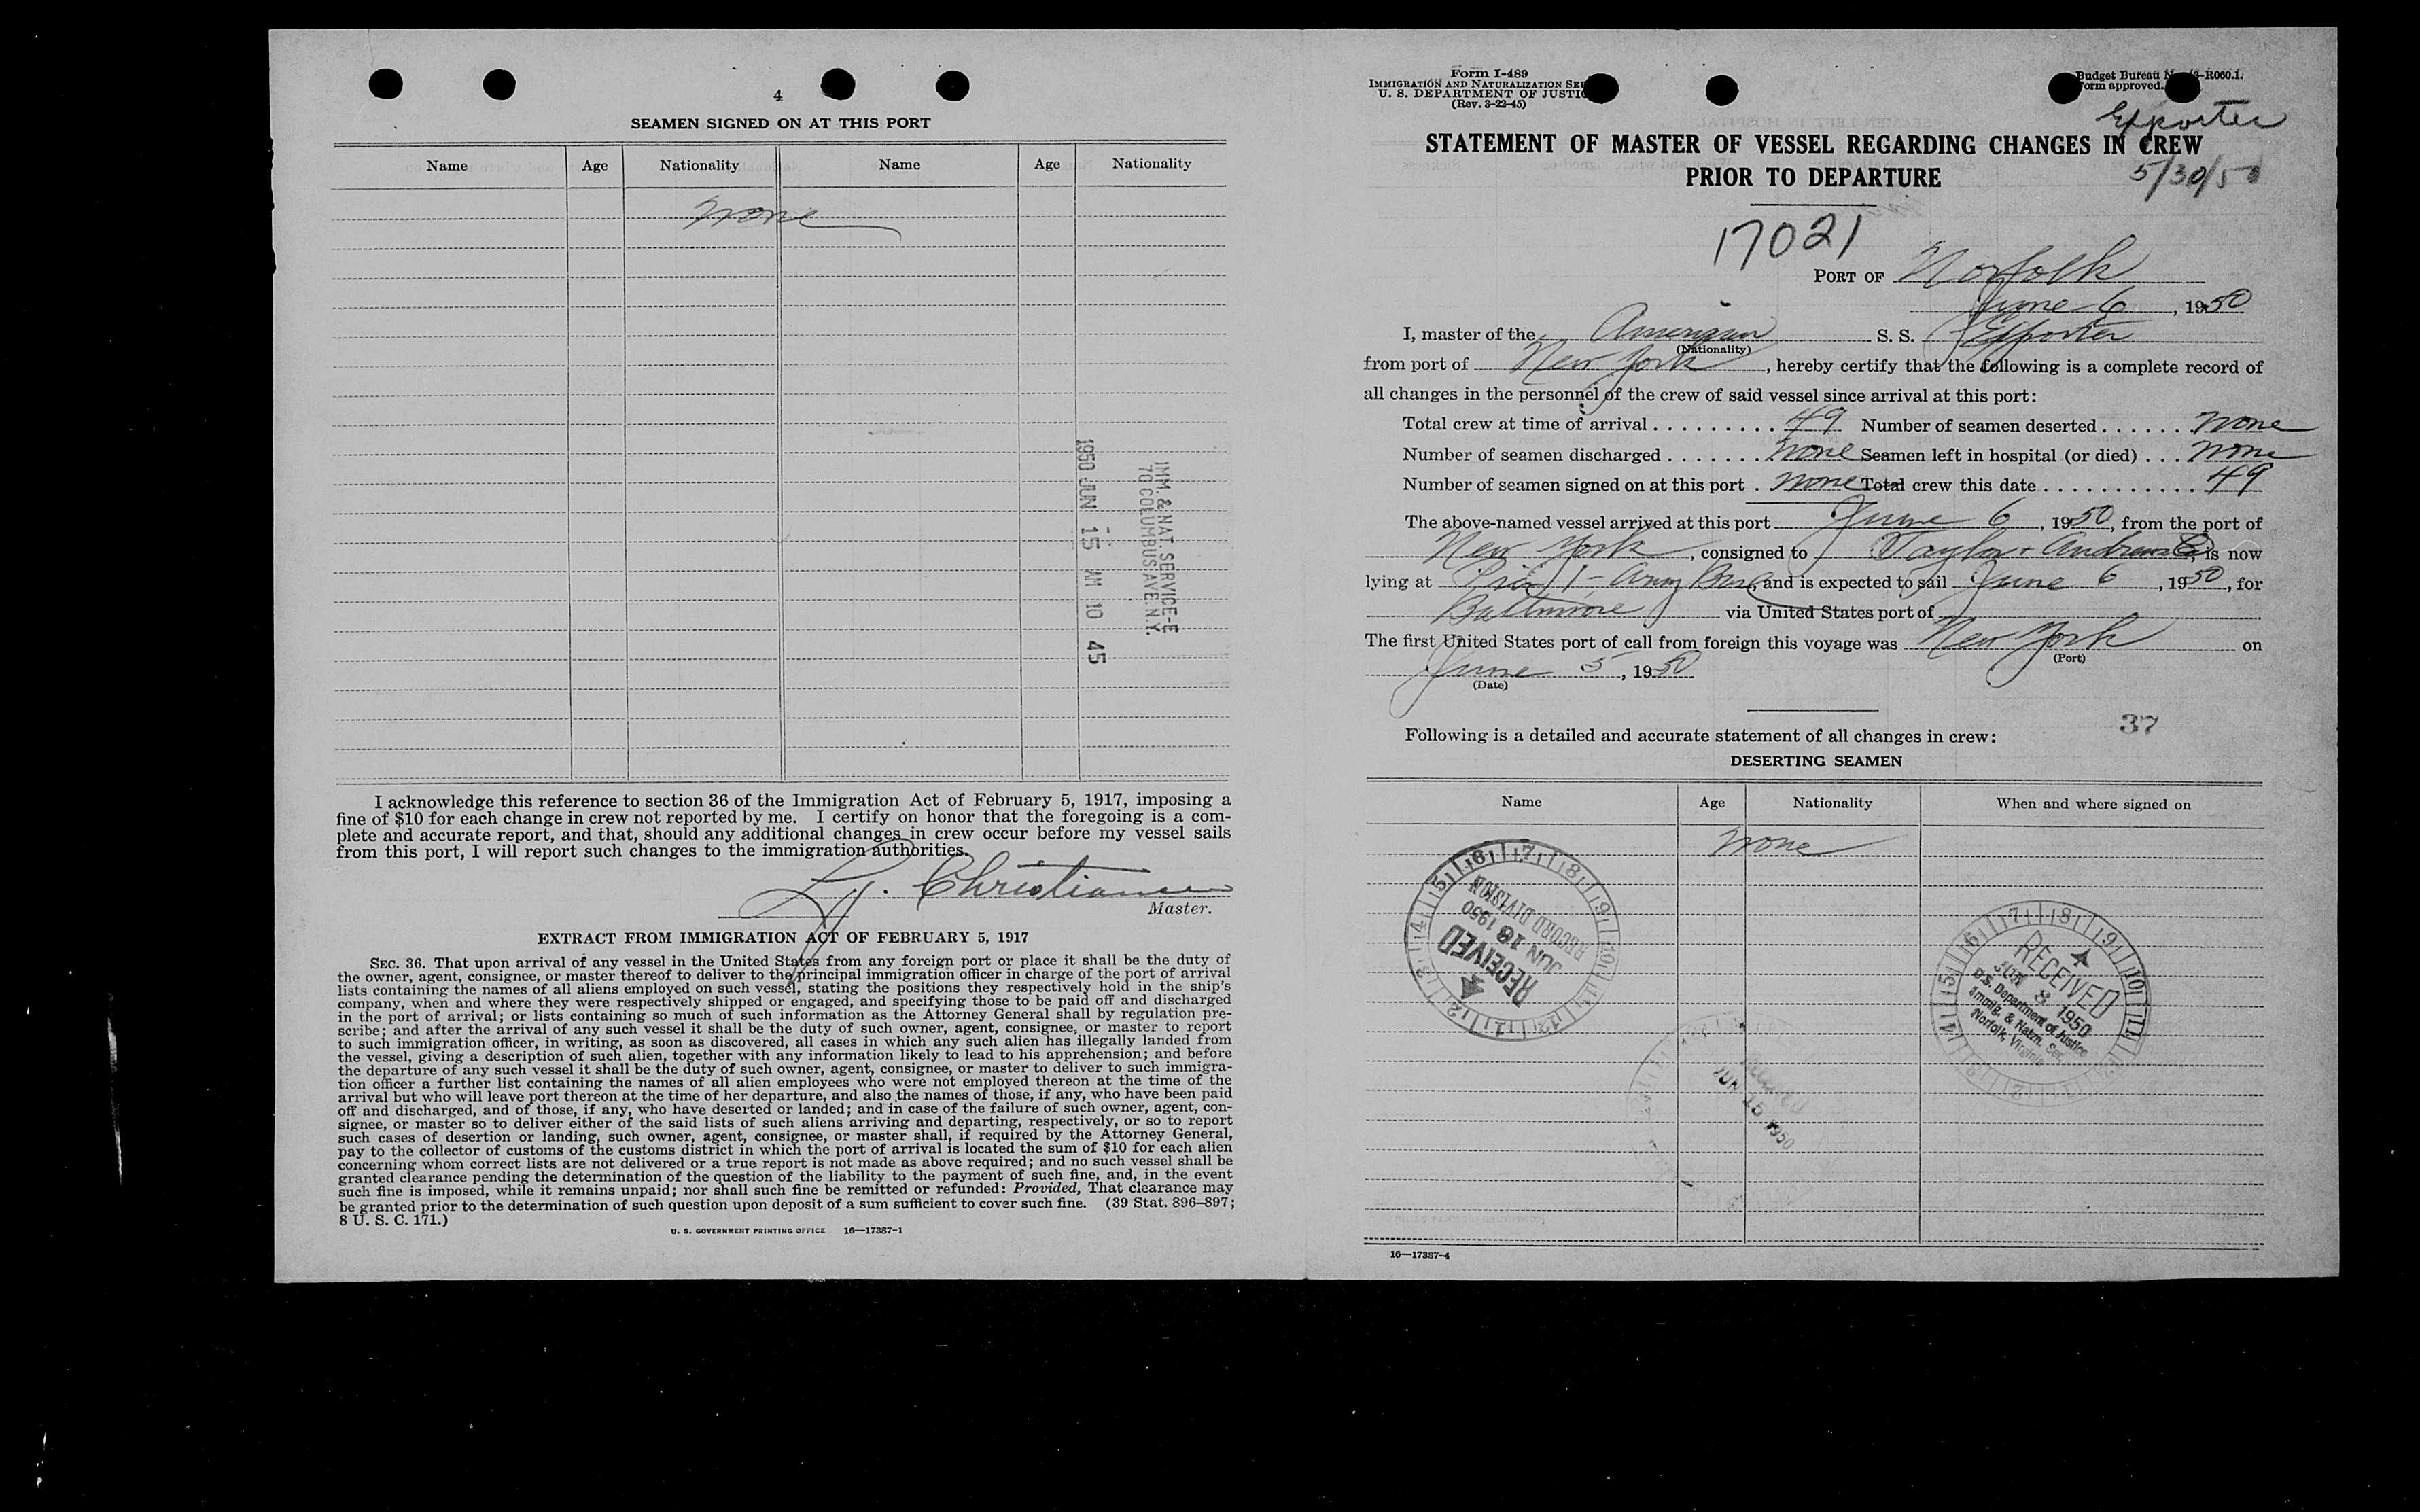 4
SEAMEN SIGNED ON AT THIS PORT
Name Age Nationality Name Age Nationality
None
1950 JUN 15 AM 10 45
IMM. & NAT. SERVICE-E
70 COLUMBUS AVE. N.Y.
I acknowledge this reference to section 36 of the Immigration Act of February 5, 1917, imposing a
fine of $10 for each change in crew not reported by me. I certify on honor that the foregoing is a com-
plete and accurate report, and that, should any additional changes in crew occur before my vessel sails
from this port, I will report such changes to the immigration authorities.
Christiansen
Master.
EXTRACT FROM IMMIGRATION ACT OF FEBRUARY 5, 1917
SEC. 36. That upon arrival of any vessel in the United States from any foreign port or place it shall be the duty of
the owner, agent, consignee, or master thereof to deliver to the principal immigration officer in charge of the port of arrival
lists containing the names of all aliens employed on such vessel, stating the positions they respectively hold in the ship's
company, when and where they were respectively shipped or engaged, and specifying those to be paid off and discharged
in the port of arrival; or lists containing so much of such information as the Attorney General shall by regulation pre-
scribe; and after the arrival of any such vessel it shall be the duty of such owner, agent, consignee, or master to report
to such immigration officer, in writing, as soon as discovered, all cases in which any such alien has illegally landed from
the vessel, giving a description of such alien, together with any information likely to lead to his apprehension; and before
the departure of any such vessel it shall be the duty of such owner, agent, consignee, or master to deliver to such immigra-
tion officer a further list containing the names of all alien employees who were not employed thereon at the time of the
arrival but who will leave port thereon at the time of her departure, and also the names of those, if any, who have been paid
off and discharged, and of those, if any, who have deserted or landed; and in case of the failure of such owner, agent, con-
signee, or master so to deliver either of the said lists of such aliens arriving and departing, respectively, or so to report
such cases of desertion or landing, such owner, agent, consignee, or master shall, if required by the Attorney General,
pay to the collector of customs of the customs district in which the port of arrival is located the sum of $10 for each alien
concerning whom correct lists are not delivered or a true report is not made as above required; and no such vessel shall be
granted clearance pending the determination of the question of the liability to the payment of such fine, and, in the event
such fine is imposed, while it remains unpaid; nor shall such fine be remitted or refunded: Provided, That clearance may
be granted prior to the determination of such question upon deposit of a sum sufficient to cover such fine. (39 Stat. 896–897;
8 U. S. C. 171.)
U. S. GOVERNMENT PRINTING OFFICE 16—17387-1
Form I-489
IMMIGRATION AND NATURALIZATION SE
U. S. DEPARTMENT OF JUSTIC
(Rev. 3-22-45)
Budget Bureau N -R060.1.
orm approved.
Exporter
STATEMENT OF MASTER OF VESSEL REGARDING CHANGES IN CREW
PRIOR TO DEPARTURE
5/30/50
17021
PORT OF Norfolk
June 6, 1950
I, master of the American S. S. Exporter
(Nationality)
from port of New York, hereby certify that the following is a complete record of
all changes in the personnel of the crew of said vessel since arrival at this port:
Total crew at time of arrival . . . . . . . . . 49 Number of seamen deserted . . . . . . none
Number of seamen discharged . . . . . . . none Seamen left in hospital (or died) . . . none
Number of seamen signed on at this port . none Total crew this date . . . . . . . . . . . . 49
The above-named vessel arrived at this port June 6, 1950, from the port of
New York, consigned to Taylor + Andrews Co, is now
lying at Pier 1 - Army Base, and is expected to sail June 6, 1950, for
Baltimore via United States port of
The first United States port of call from foreign this voyage was New York on
(Port)
June 5, 1950
(Date)
37
Following is a detailed and accurate statement of all changes in crew:
DESERTING SEAMEN
Name Age Nationality When and where signed on
None
RECEIVED
JUN 16 1950
RECORD DIVISION
RECEIVED
JUN 8 1950
U.S. Department of Justice
Immig. & Natzn. Ser.
Norfolk, Virginia
JUN 15 1950
16—17387-4